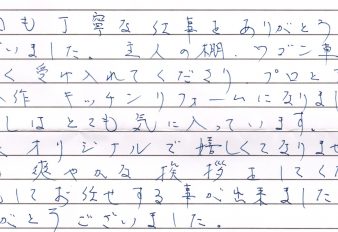 も丁寧な仕事をありがとう
いました。主人の棚、ワゴン車
く受け入れてくださり、プロとア
作キッチンリフォームになりまし
しはとても気に入っています。
オリジナルで嬉しくてなりませ
爽やかな挨拶をしてく
してお任せする事が出来ました
がとうございました。